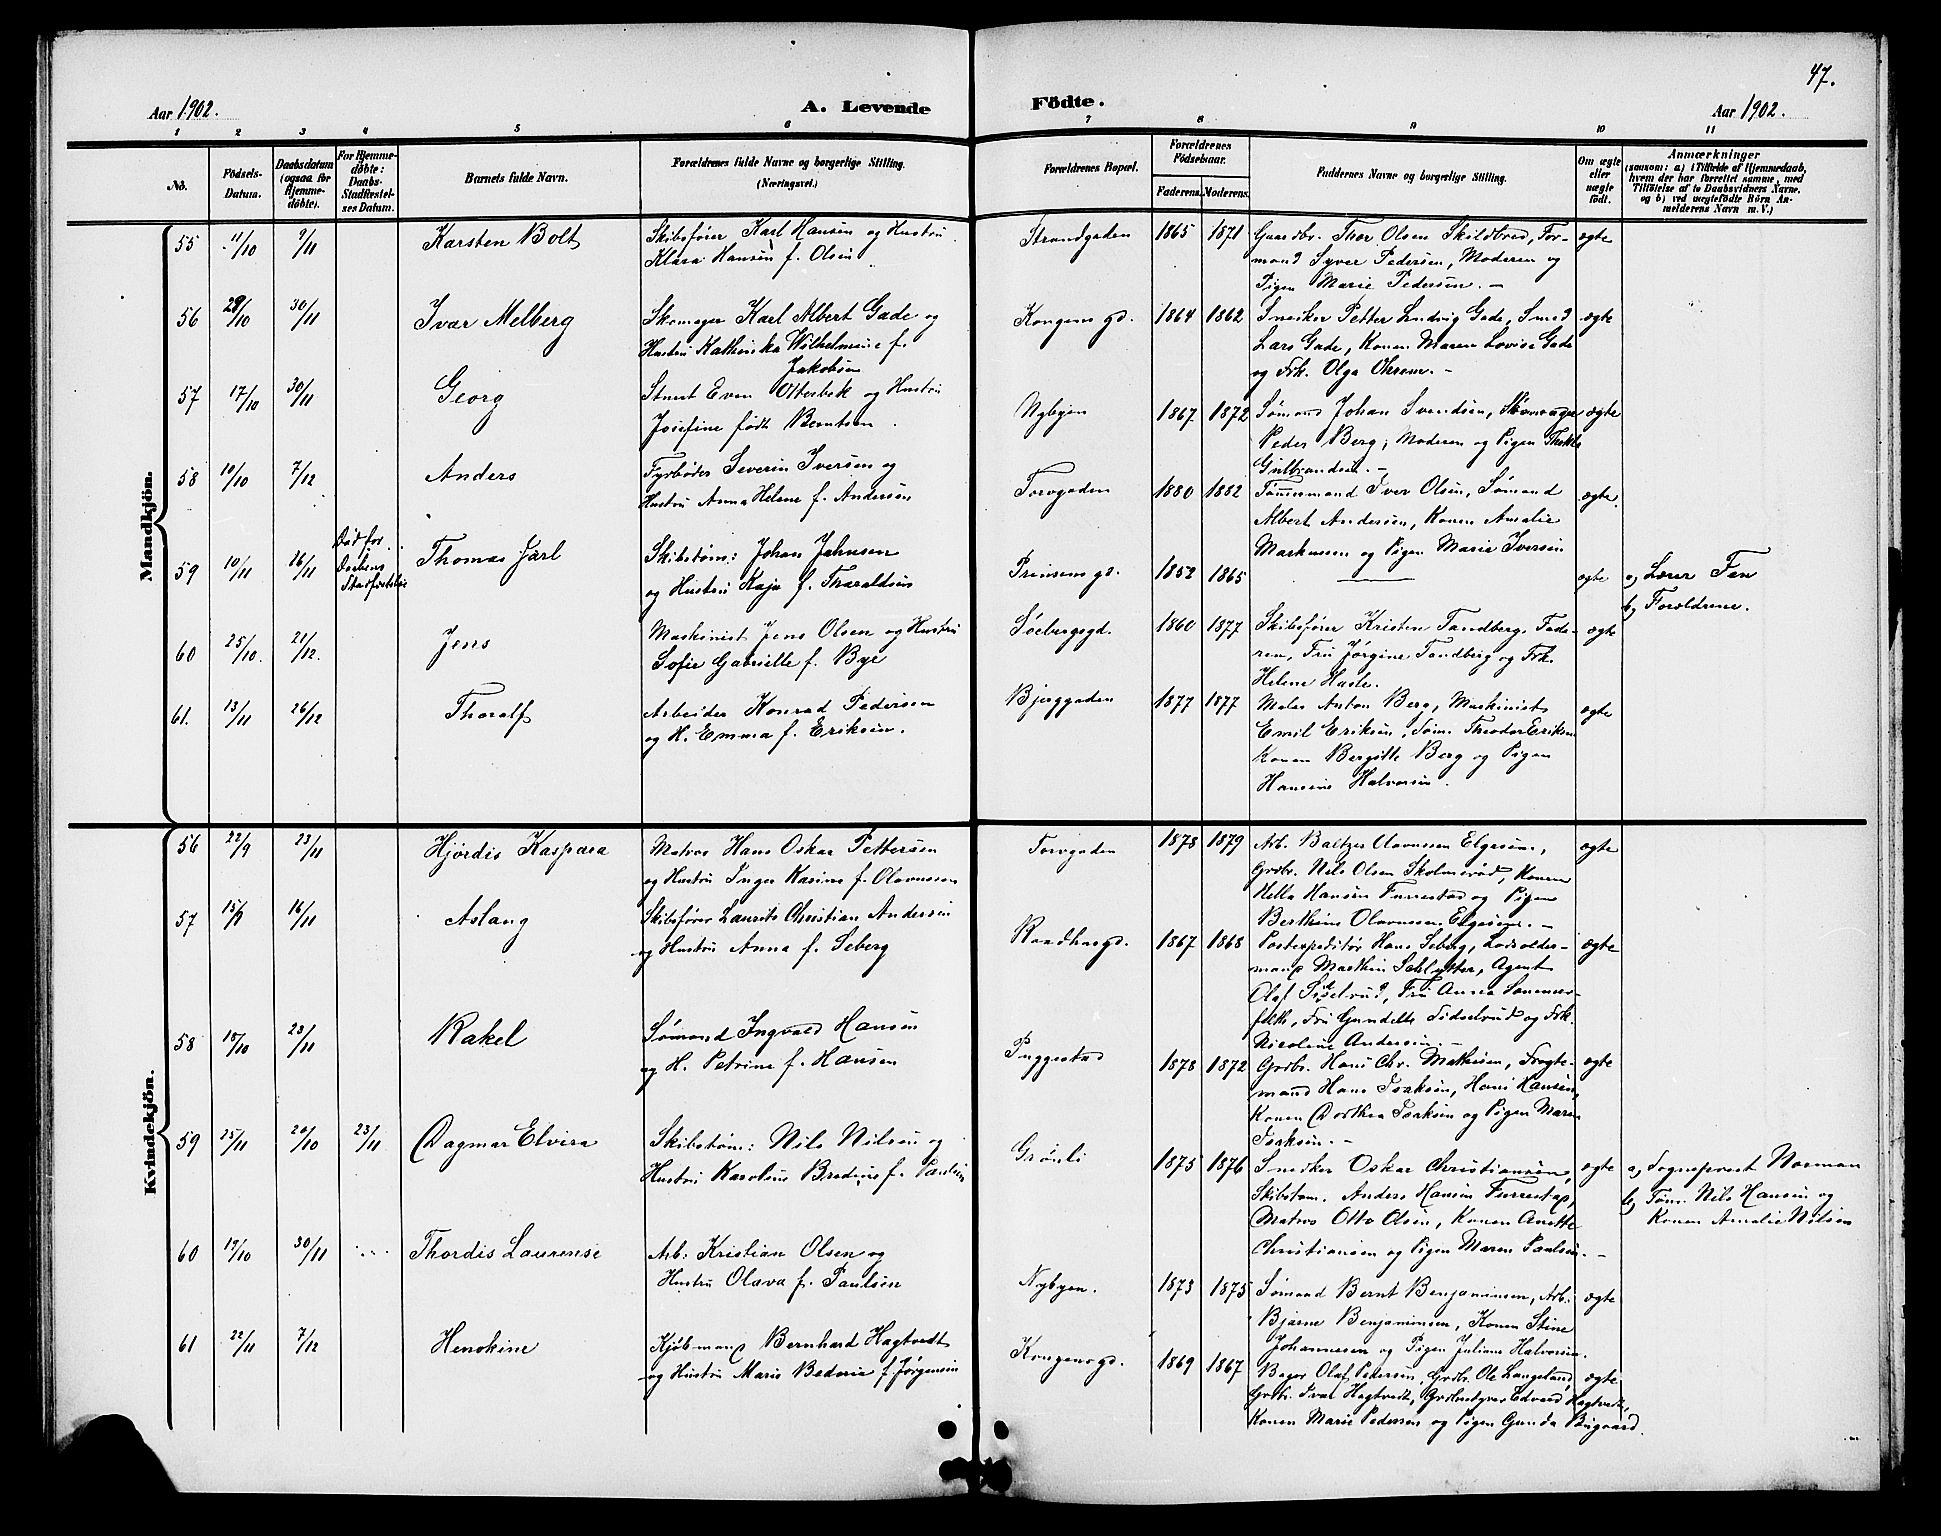 47.
Aar 1902.
A. Levende
Födte.
Aar 1902.
1 2 3 4 5 6 7 8 9 10 11
No.
Födsels-
Datum.
Daabsdatum
(ogsaa for
Hjemme-
døbte).
For Hjemme-
døbte:
Daabs-
Stadfæstel-
ses Datum.
Barnets fulde Navn.
Forældrenes fulde Navne og borgerlige Stilling.
(Næringsvei.)
Forældrenes Bopæl.
Forældrenes
Fødselsaar.
Faderens.
Moderens.
Faddernes Navne og borgerlige Stilling.
Om ægte
eller
uægte
født.
Anmærkninger
(saasom: a) i Tilfælde af Hjemmedaab,
hvem der har forrettet samme, med
Tilføielse af to Daabsvidners Navne,
og b) ved uægtefødte Børn An-
melderens Navn m. V.)
Mandkjön.
55 11/10 9/11 Karsten Bolt
Skibsfører Karl Hansen og Hustru
Klara Hansen f. Olsen
Strandgaden 1865 1871
Gaardbr. Thor Olsen Skildbred, For-
mand Syver Pedersen, Moderen og
Pigen Marie Pedersen. -
ægte
56 29/10 30/11 Ivar Melberg
Skomager Karl Albert Gade og
Hustru Kathinka Wilhelmine f.
Jakobsen
Kongensgd. 1864 1862
Snedker Petter Ludvig Gade, Smed
Lars Gade, Konen Maren Lovise Gade
og Frk. Olga Ohrem. -
ægte
57 17/10 30/11 Georg
Stuert Even Otterbek og Hustru
Josefine født Berntsen
Nybyen 1867 1872
Sømand Johan Svendsen, Skomager
Peder Berg, Moderen og Pigen Thekla
Gulbrandsen. -
ægte
58 10/10 7/12 Anders
Fyrbøder Severin Iversen og
Hustru Anna Helene f. Andersen
Torvgaden 1880 1882
Tømmermand Iver Olsen, Sømand
Albert Andersen, Konen Amalie
Markussen og Pigen Marie Iversen
ægte.
59 10/11 16/11 Død før
Daabens
Stadfæstelse
Thomas Jarl
Skibstøm: Johan Jahnsen
og Hustru Kaja f. Tharaldsen
Prinsensgd. 1852 1865
ægte
a, Lærer Fen
b, Forældrene.
60 25/10. 21/12. Jens
Maskinist Jens Olsen og Hustru
Sofie Gabrielle f. Bye
Søebergsgd. 1860 1877
Skibsfører Kristen Tandberg, Fade-
ren, Fru Jørgine Tandberg og Frk.
Helene Hasle.
ægte
61. 13/11 26/12 Thoralf
Arbeider Konrad Pedersen
og H. Emma f. Eriksen.
Bjerggaden 1877 1877
Maler Anton Berg, Maskinist
Emil Eriksen, Søm. Theodor Eriksen
Konen Bergitte Berg og Pigen
Hansine Halvorsen.
ægte
Kvindekjön.
56 22/9 23/11 Hjørdis Kaspara
Matros Hans Oskar Pettersen
og Hustru Inger Karine f. Olavussen
Torvgaden 1878 1879
Arb. Baltzer Olavussen Elgesem,
Grdbr. Nils Olsen Skolmerød, Konen
Hella Hansen Furrestad og Pigen
Berthine Olavussen Elgesem. -
ægte
57 15/9 16/11 Aslaug
Skibsfører Laurits Christian Andersen
og Hustru Anna f. Seberg
Raadhusgd. 1867 1868
Postexpeditør Hans Seberg, Lodsolder-
mand Marthin Schlytter, Agent
Olaf Sidselrud, Fru Anna Sommer-
feldt, Fru Gundelle Sidselrud og Frk.
Nicoline Andersen. -
ægte
58 18/10 23/11 Rakel
Sømand Ingvald Hansen
og H. Petrine f. Hansen
Puggestad 1878 1872
Grdbr. Hans Chr. Mathisen, Fragte-
mand Hans Isaksen, Hans Hansen,
Konen Dorthea Isaksen og Pigen Maren
Isaksen. -
ægte
59 25/11 20/10 23/11 Dagmar Elvira
Skibstøm: Nils Nilsen og
Hustru Karoline Bredine f. Paulsen
Grønli 1875 1876
Snedker Oskar Christiansen,
Skibstøm. Anders Hansen Furrestad,
Matros Otto Olsen, Konen Anette
Christiansen og Pigen Maren Paulsen. -
ægte
a, Sogneprest Norman
b, Tøm. Nils Hansen og
Konen Amalie Nilsen
60 19/10 30/11 Thordis Laurense
Arb. Kristian Olsen og
Hustru Olava f. Paulsen
Nybyen. 1873 1875
Sømand Bernt Benjaminsen, Arb.
Bjarne Benjaminsen, Konen Stine
Johannesen og Pigen Juliane Halvorsen.
ægte
61 22/11 7/12 Henrkine
Kjøbmand Bernhard Hagtvedt
og Hustru Marie Bedorie f. Jørgensen
Kongensgd. 1869 1867
Bager Olaf Pedersen, Grdbr. Ole Langeland,
Grdbr. Ivar Hagtvedt, Grdbrstyver Edvard Hagtvedt,
Konen Marie Pedersen og Pigen Gunda Bugaard.
ægte